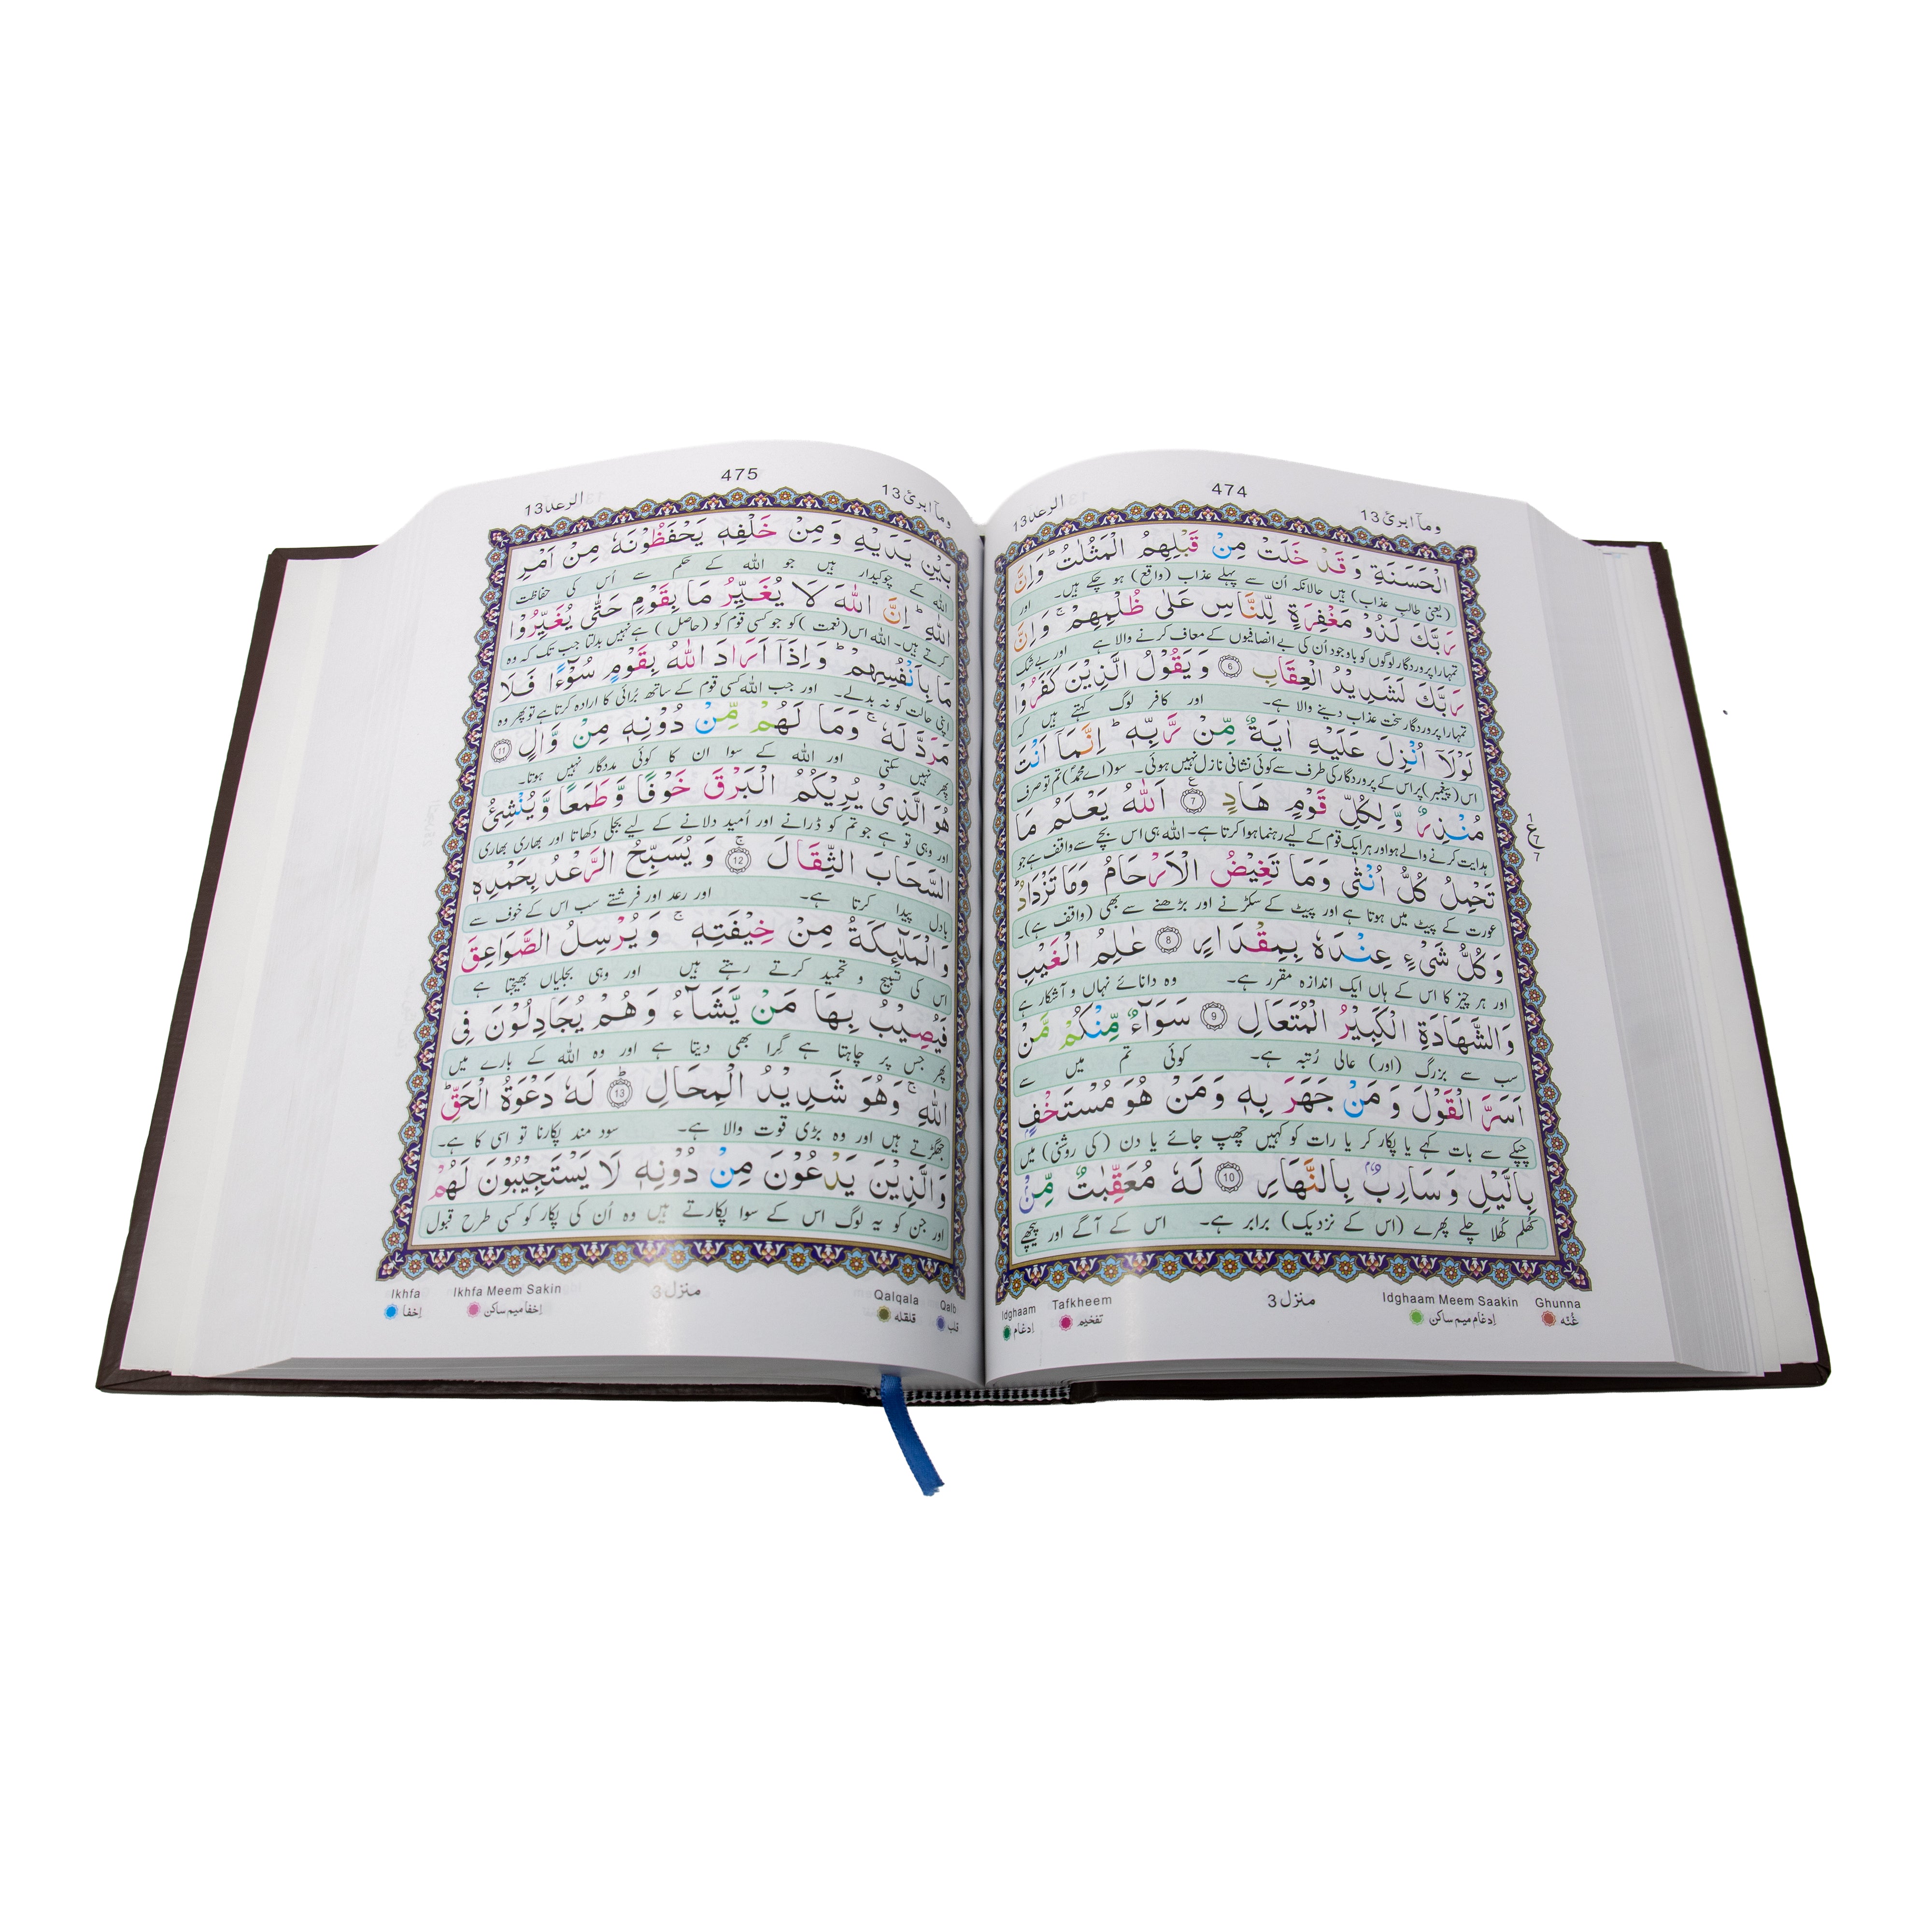 وماابرئ13
474
الرعد13
الْحَسَنَةِ وَ قَدْ خَلَتْ مِنْ قَبْلِهِمُ الْمَثُلٰتُ ؕ وَ اِنَّ
(یعنی طالب عذاب) ہیں حالانکہ اُن سے پہلے عذاب (واقع) ہو چکے ہیں۔ اور
رَبَّكَ لَذُوْ مَغْفِرَةٍ لِّلنَّاسِ عَلٰى ظُلْمِهِمْ ۚ وَ اِنَّ
تمہارا پروردگار لوگوں کو باوجود اُن کی بے انصافیوں کے معاف کرنے والا ہے اور بے شک
رَبَّكَ لَشَدِيْدُ الْعِقَابِ ۶ وَ يَقُوْلُ الَّذِيْنَ كَفَرُوْا
تمہارا پروردگار سخت عذاب دینے والا ہے۔ اور کافر لوگ کہتے ہیں کہ
لَوْلَاۤ اُنْزِلَ عَلَيْهِ اٰيَةٌ مِّنْ رَّبِّهٖ ؕ اِنَّمَاۤ اَنْتَ
اس (پیغمبر) پر اس کے پروردگار کی طرف سے کوئی نشانی نازل نہیں ہوئی۔ سو (اے محمدؐ) تم تو صرف
مُنْذِرٌ وَّ لِكُلِّ قَوْمٍ هَادٍ ۷ ع اَللّٰهُ يَعْلَمُ مَا
ہدایت کرنے والے ہو اور ہر ایک قوم کے لیے رہنما ہوا کرتا ہے۔ اللہ ہی اس بچے سے واقف ہے جو
تَحْمِلُ كُلُّ اُنْثٰى وَمَا تَغِيْضُ الْاَرْحَامُ وَمَا تَزْدَادُ ؕ
عورت کے پیٹ میں ہوتا ہے اور پیٹ کے سکڑنے اور بڑھنے سے بھی (واقف ہے)۔
وَ كُلُّ شَيْءٍ عِنْدَهٗ بِمِقْدَارٍ ۸ عٰلِمُ الْغَيْبِ
اور ہر چیز کا اس کے ہاں ایک اندازہ مقرر ہے۔ وہ دانائے نہاں و آشکار ہے
وَالشَّهَادَةِ الْكَبِيْرُ الْمُتَعَالِ ۹ سَوَآءٌ مِّنْكُمْ مَّنْ
سب سے بزرگ (اور) عالی رُتبہ ہے۔ کوئی تم میں سے
اَسَرَّ الْقَوْلَ وَ مَنْ جَهَرَ بِهٖ وَمَنْ هُوَ مُسْتَخْفٍۭ
چپکے سے بات کہے یا پکار کر یا رات کو کہیں چھپ جائے یا دن (کی روشنی) میں
بِالَّيْلِ وَ سَارِبٌۢ بِالنَّهَارِ ۱۰ لَهٗ مُعَقِّبٰتٌ مِّنْۢ
کھلم کھلا چلے پھرے (اس کے نزدیک) برابر ہے۔ اس کے آگے اور پیچھے
Idghaam Tafkheem منزل 3 Idghaam Meem Saakin Ghunna
ادغام تفخیم ادغام میم ساکن غُنّہ
وماابرئ13
475
الرعد13
بَيْنِ يَدَيْهِ وَ مِنْ خَلْفِهٖ يَحْفَظُوْنَهٗ مِنْ اَمْرِ
اللہ کے چوکیدار ہیں جو اللہ کے حکم سے اُس کی حفاظت
اللّٰهِ ؕ اِنَّ اللّٰهَ لَا يُغَيِّرُ مَا بِقَوْمٍ حَتّٰى يُغَيِّرُوْا
کرتے ہیں۔ اللہ اس (نعمت) کو جو کسی قوم کو (حاصل) ہے نہیں بدلتا جب تک کہ وہ
مَا بِاَنْفُسِهِمْ ؕ وَ اِذَاۤ اَرَادَ اللّٰهُ بِقَوْمٍ سُوْٓءًا فَلَا
اپنی حالت کو نہ بدلے۔ اور جب اللہ کسی قوم کے ساتھ بُرائی کا ارادہ کرتا ہے تو پھر وہ
مَرَدَّ لَهٗ ۚ وَمَا لَهُمْ مِّنْ دُوْنِهٖ مِنْ وَّالٍ ۱۱
پھر نہیں سکتی اور اللہ کے سوا ان کا کوئی مددگار نہیں ہوتا۔
هُوَ الَّذِيْ يُرِيْكُمُ الْبَرْقَ خَوْفًا وَّ طَمَعًا وَّ يُنْشِئُ
اور وہی تو ہے جو تم کو ڈرانے اور اُمید دلانے کے لیے بجلی دکھاتا اور بھاری بھاری
السَّحَابَ الثِّقَالَ ۱۲ وَ يُسَبِّحُ الرَّعْدُ بِحَمْدِهٖ
بادل پیدا کرتا ہے۔ اور رعد اور فرشتے سب اس کے خوف سے
وَ الْمَلٰٓئِكَةُ مِنْ خِيْفَتِهٖ ۚ وَ يُرْسِلُ الصَّوَاعِقَ
اس کی تسبیح و تحمید کرتے رہتے ہیں اور وہی بجلیاں بھیجتا ہے
فَيُصِيْبُ بِهَا مَنْ يَّشَآءُ وَ هُمْ يُجَادِلُوْنَ فِى
پھر جس پر چاہتا ہے گرا بھی دیتا ہے اور وہ اللہ کے بارے میں
اللّٰهِ ۚ وَهُوَ شَدِيْدُ الْمِحَالِ ۱۳ لَهٗ دَعْوَةُ الْحَقِّ ؕ
جھگڑتے ہیں اور وہ بڑی قوت والا ہے۔ سود مند پکارنا تو اسی کا ہے۔
وَالَّذِيْنَ يَدْعُوْنَ مِنْ دُوْنِهٖ لَا يَسْتَجِيْبُوْنَ لَهُمْ
اور جن کو یہ لوگ اس کے سوا پکارتے ہیں وہ اُن کی پکار کو کسی طرح قبول
Ikhfa Ikhfa Meem Sakin منزل 3 Qalqala Qalb
اِخفا اِخفا میم ساکن قلقلہ قلب